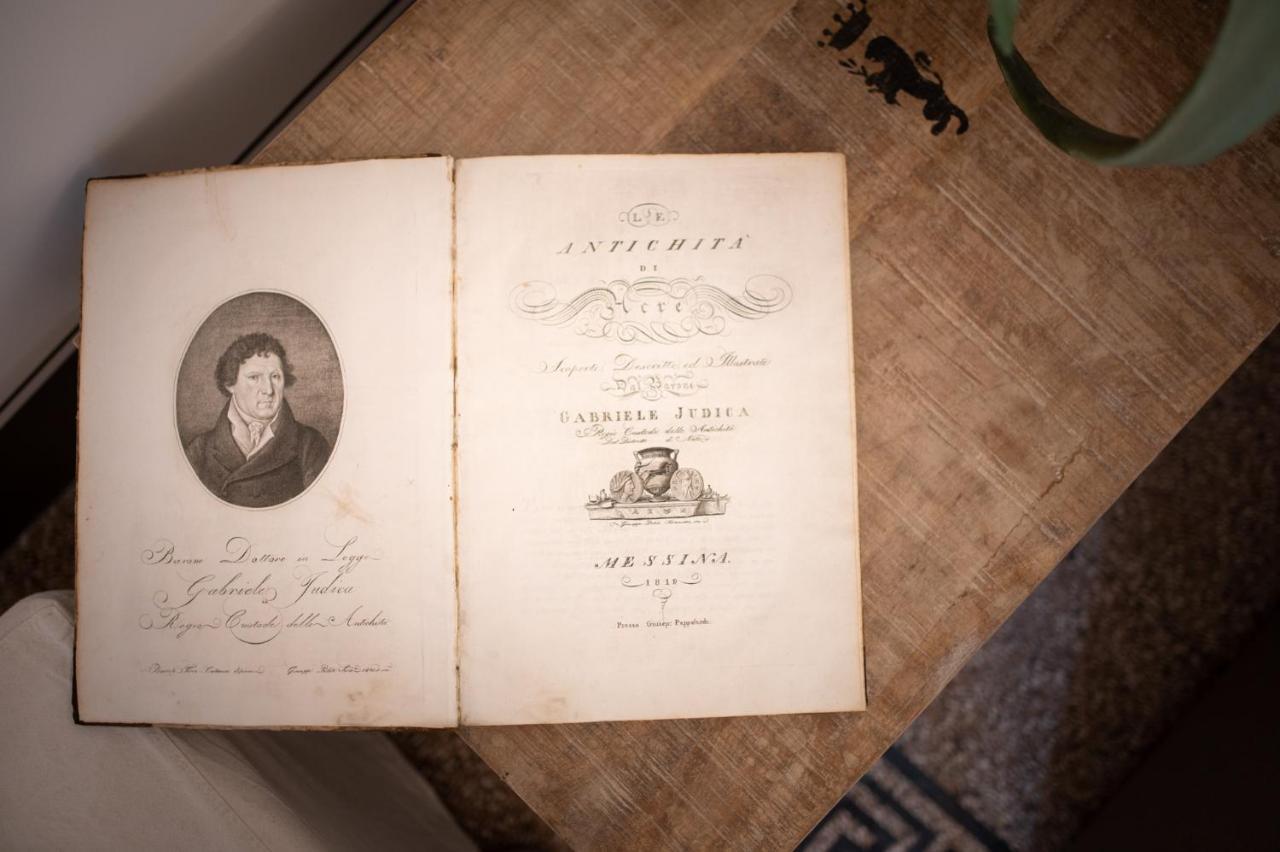 Barone Dottore in Legge
Gabriele Judica
Regio Custode delle Antichità
LE
ANTICHITÀ
DI
Acre
Scoperte Descritte ed Illustrate
Dal Barone
GABRIELE JUDICA
Regio Custode delle Antichità
Del Distretto di Noto
MESSINA.
1819
Presso Giusep: Pappalardo